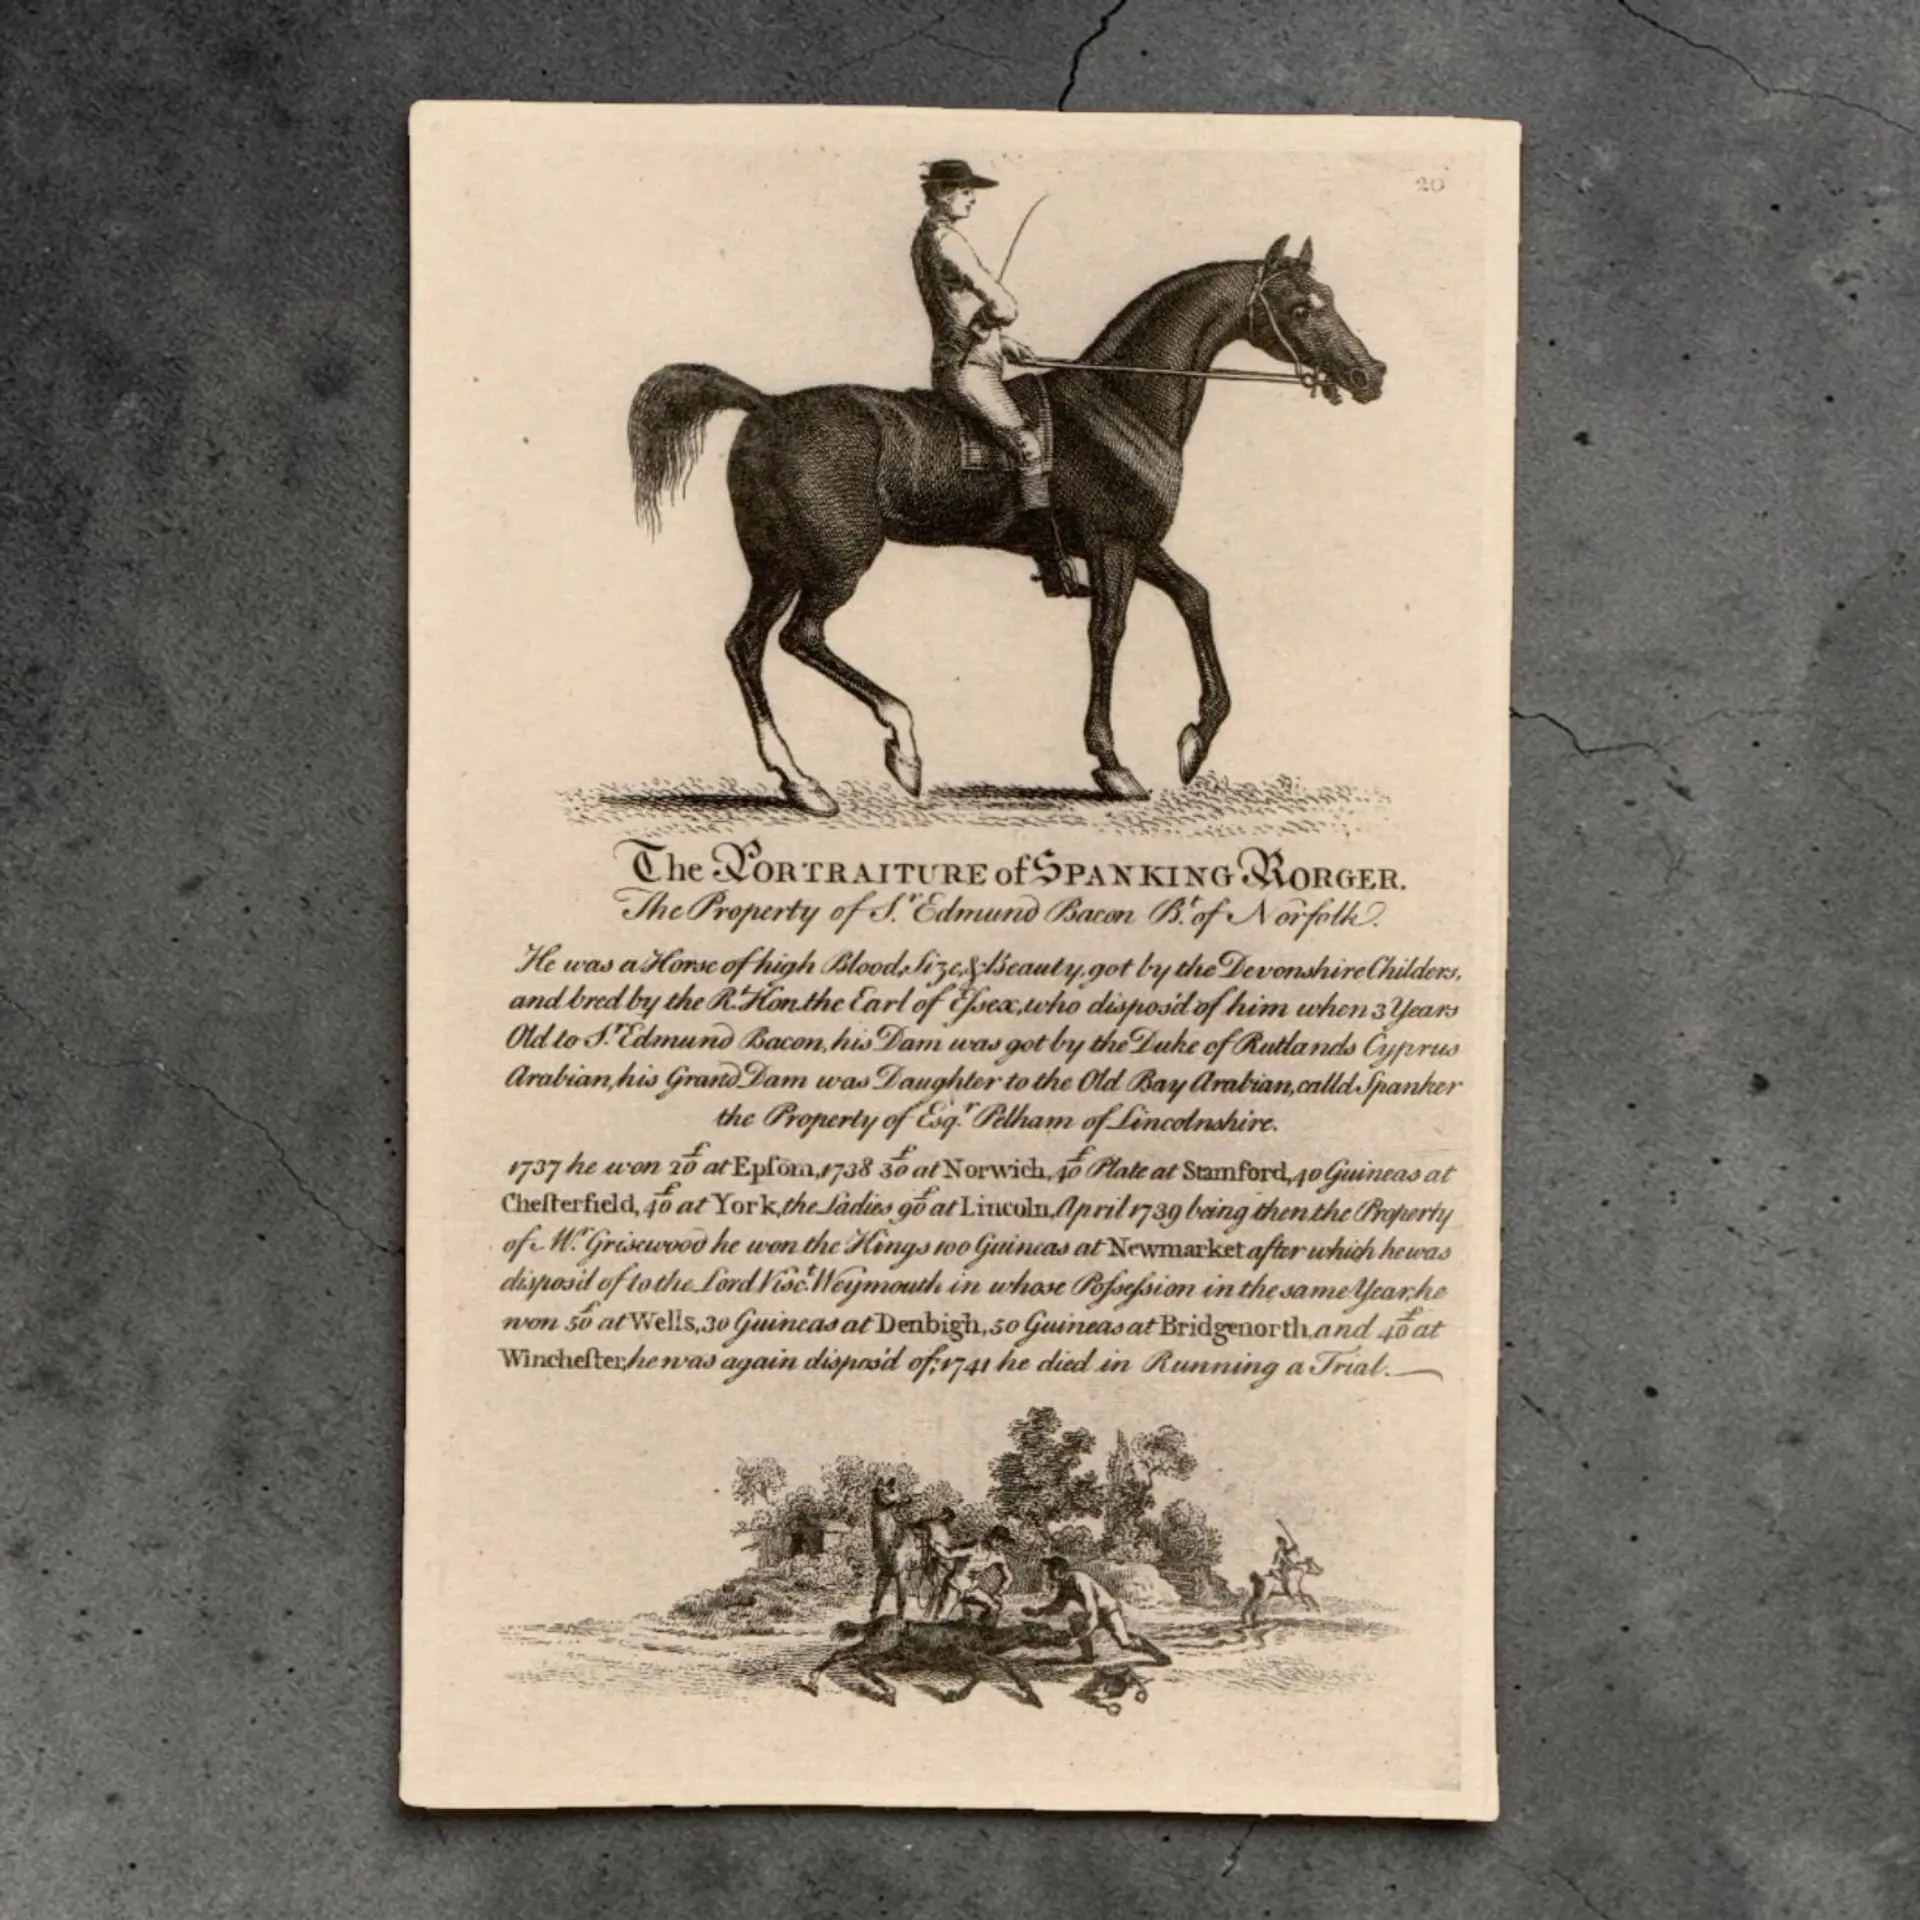 20
The PORTRAITURE of SPANKING RORGER.
The Property of S.r Edmund Bacon B.t of Norfolk.
He was a Horse of high Blood, Size, & Beauty, got by the Devonshire Childers,
and bred by the R.t Hon. the Earl of Eſsex, who dispos'd of him when 3 Years
Old to S.r Edmund Bacon, his Dam was got by the Duke of Rutlands Cyprus
Arabian, his Grand Dam was Daughter to the Old Bay Arabian, calld Spanker
the Property of Esq.r Pelham of Lincolnshire.
1737 he won 20£ at Epſom, 1738 30£ at Norwich, 40£ Plate at Stamford, 40 Guineas at
Cheſterfield, 40£ at York, the Ladies 90£ at Lincoln, April 1739 being then the Property
of M.r Grisewood he won the Kings 100 Guineas at Newmarket after which he was
dispos'd of to the Lord Visc.t Weymouth in whose Poſseſsion in the same Year, he
won 50£ at Wells, 30 Guineas at Denbigh, 50 Guineas at Bridgenorth, and 40£ at
Wincheſter, he was again dispos'd of; 1741 he died in Running a Trial.